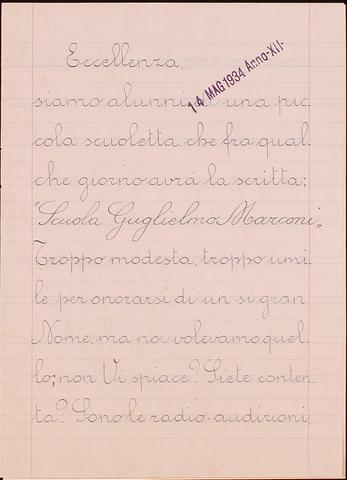 Eccellenza,
14 MAG 1934 Anno-XII-
siamo alunni di una pic
cola scuoletta, che fra qual.
che giorno avrá la scritta:
"Scuola Guglielmo Marconi„
Troppo modesta, troppo umi.
le, per onorarsi di un si gran
Nome, ma noi volevamo quel.
lo; non Vi spiace? Siete conten.
ta? Sono le radio-audizioni,